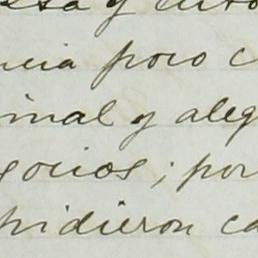 esa y
ncia poco c
inal y aleg
gocios; por
pidieron ca